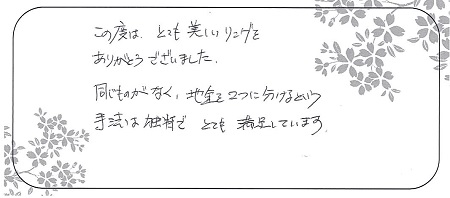 この度は、とても美しいリングを
ありがとうございました.
同じものがなく、地金を2つに分けるという
手法は独特で とても 満足しています.